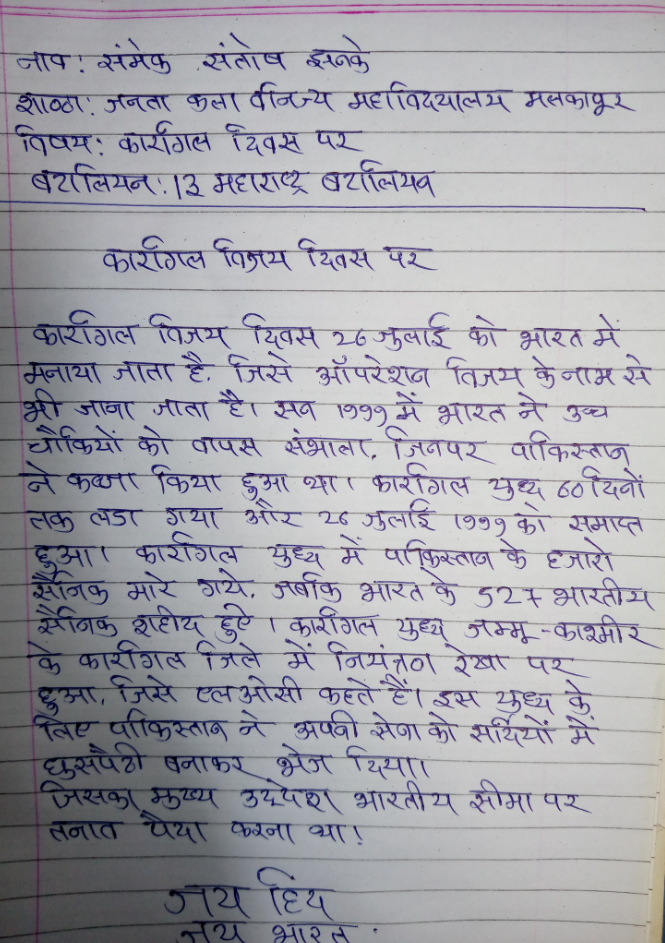 नाव: संमेक संतोष इनके
शाळा: जनता कला वीनज्य महाविदयालय मलकापूर
विषय: कारगिल दिवस पर
बटालियन: 13 महाराष्ट्र बटालियन
कारगिल विजय दिवस पर
कारगिल विजय दिवस 26 जुलाई को भारत में
मनाया जाता है. जिसे ऑपरेशन विजय के नाम से
भी जाना जाता है। सन 1999 में भारत ने उच्च
चौकियों को वापस संभाला, जिनपर पाकिस्तान
ने कब्जा किया हुआ था। कारगिल युध्द 60 दिनों
तक लडा गया और 26 जुलाई 1999 को समाप्त
हुआ। कारगिल युध्द में पाकिस्तान के हजारो
सैनिक मारे गये. जबकि भारत के 527 भारतीय
सैनिक शहीद हुए। कारगिल युध्द जम्मू-काश्मीर
के कारगिल जिले में नियंत्रण रेखा पर
हुआ, जिसे एलओसी कहते हैं। इस युध्द के
लिए पाकिस्तान ने अपनी सेना को सर्दियों में
घुसपैटी बनाकर भेज दिया।
जिसका मुख्य उद्देश भारतीय सीमा पर
तनात पैदा करना था!
जय हिंद
जय भारत.